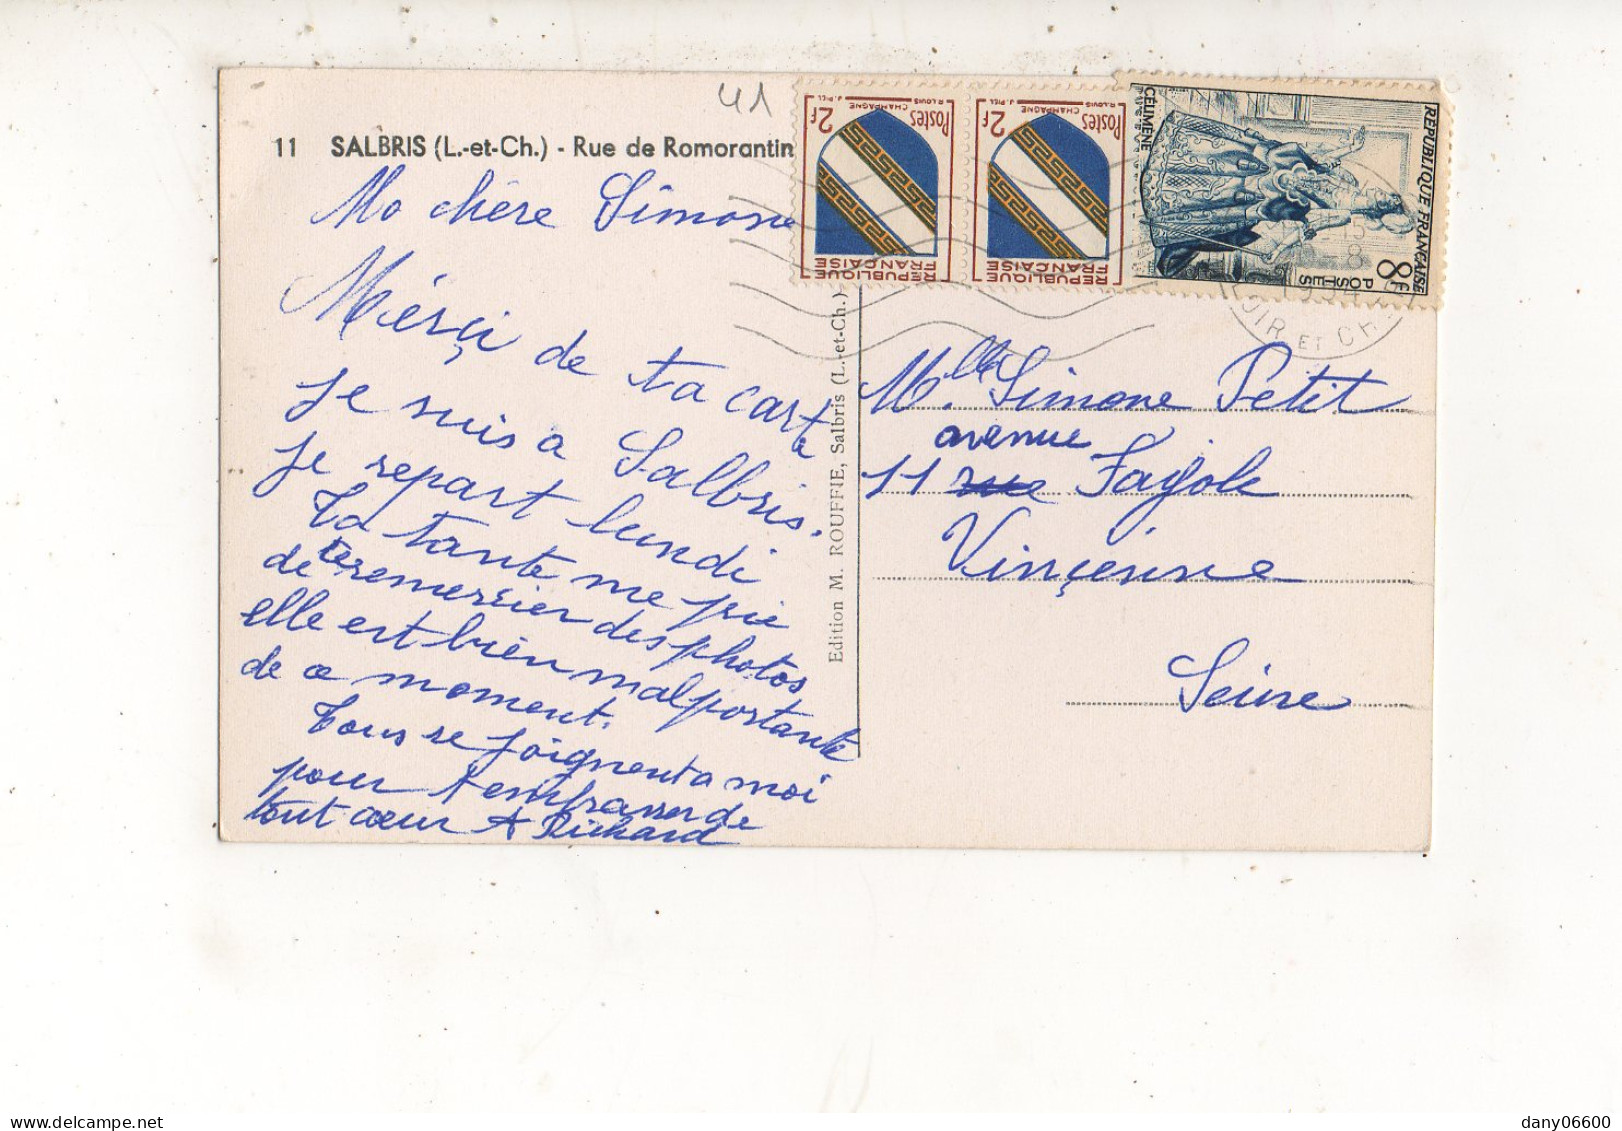 41
11 SALBRIS (L.-et-Ch.) - Rue de Romorantin
Ma chère Simone
Mérçi de ta carte
je suis a Salbris.
Je repart lundi
Ta tante me prie
de te remersier des photos
elle est bien mal portante
de ce moment.
Tous se joignent a moi
pour t'embrasser de
tout cœur A Richard
Edition M. ROUFFIE, Salbris (L.-et-Ch.)
Postes 2f
R. LOUIS J. PIEL
CHAMPAGNE
REPUBLIQUE
FRANÇAISE
Postes 2f
R. LOUIS J. PIEL
CHAMPAGNE
REPUBLIQUE
FRANÇAISE
REPUBLIQUE FRANÇAISE
CÉLIMÈNE
8F
POSTES
15
8
1954
LOIR ET CHER
Melle Simone Petit
avenue
11 rue Fayole
Vinçenne
Seine
dany06600